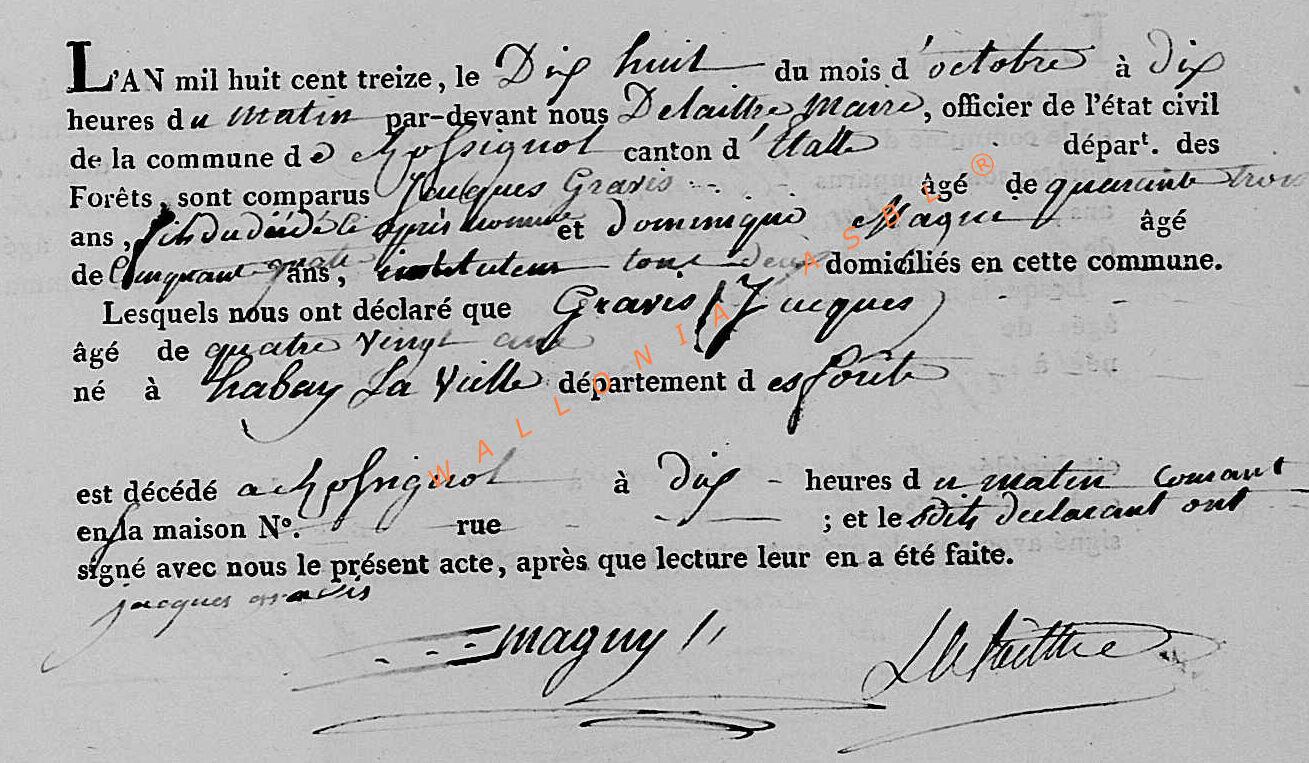 L'AN mil huit cent treize, le Dix huit du mois d'octobre à Dix
heures du matin par-devant nous Delaittre Maire, officier de l'état civil
de la commune de Rossignol canton d'Etalle dépar.t des
Forêts, sont comparus Jacques Gravis âgé de quarante trois
ans, fils du décédé ci après nommé et dominique Magui âgé
de Cinquant quatre ans, instituteur tous deux domiciliés en cette commune.
Lesquels nous ont déclaré que Gravis Jacques
âgé de quatre vingt ans
né à habay La Vielle département des forêts
est décédé a Rossignol à dix heures du matin Courant
en sa maison No. rue ; et lesdits declarant ont
signé avec nous le présent acte, après que lecture leur en a été faite.
jacques gravis
maguy Delaittre
WALLONIA ASBL ®